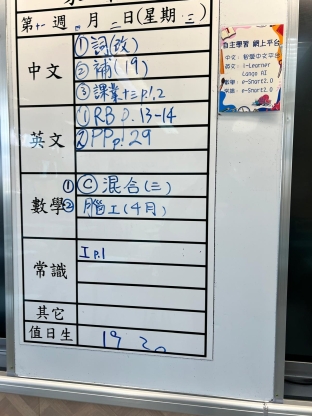 第十一週 四月二日(星期三)
中文
①詞(改)
②補(19)
③課業十三p.1,2
英文
①RB p.13-14
②PP p.29
數學
①Ⓒ混合(三)
②腦工(4月)
常識
Ip.1
其它
值日生
19 20
自主學習 網上平台
中文：智愛中文平台
英文：i-Learner
Lango AI
數學：e-Smart2.0
常識：e-Smart2.0